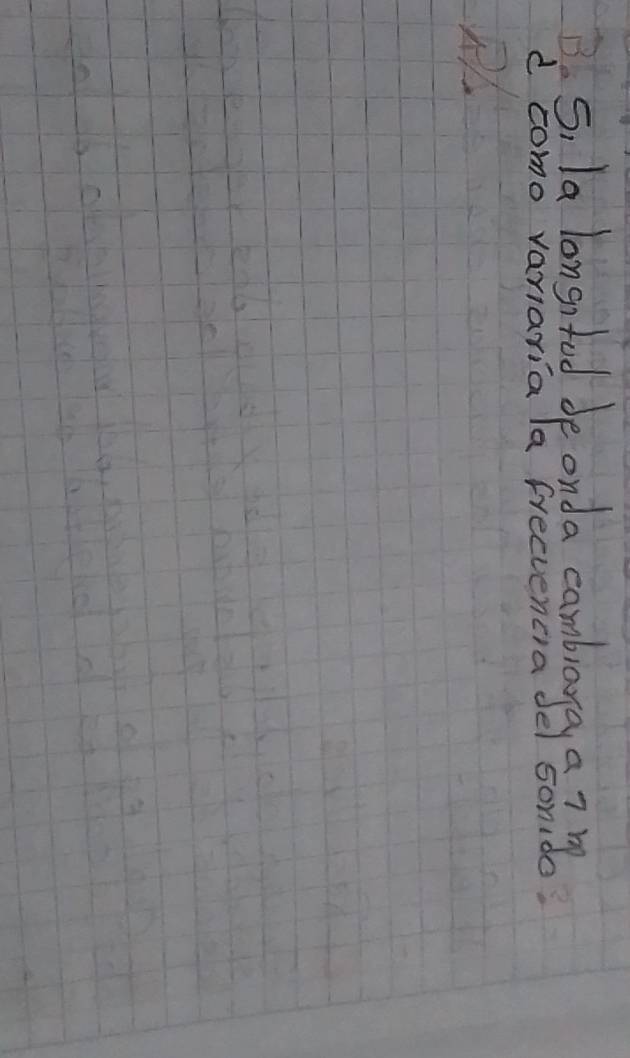 B. Si la longitud de onda cambiara, a 7 m
¿como variaría la frecuencia del sonido?
R/.